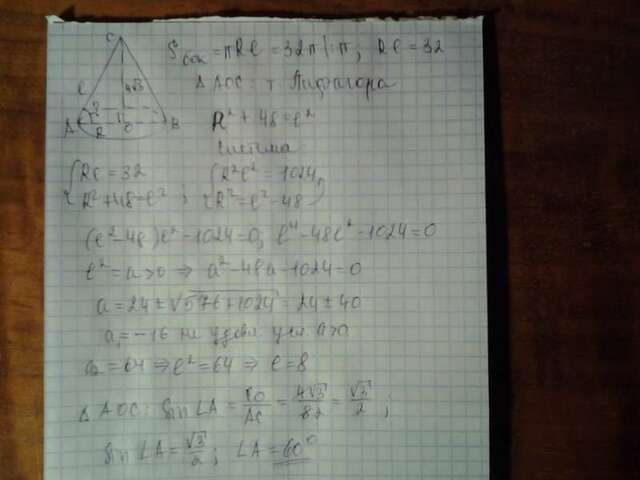 C
S бок = πRl = 32π |:π; Rl = 32
l
4√3
Δ AOC: т Пифагора
A R O B
R² + 48 = l²
система
{Rl = 32 {R²l² = 1024,
R² + 48 = l² ; R² = l² - 48
(l² - 48)l² - 1024 = 0; l⁴ - 48l² - 1024 = 0
l² = a > 0 ⇒ a² - 48a - 1024 = 0
a = 24 ± √576 + 1024 = 24 ± 40
a₁ = -16 не удовл усл a>0
a₂ = 64 ⇒ l² = 64 ⇒ l = 8
Δ AOC: sin ∠A = CO/AC = 4√3/82 = √3/2 ;
sin ∠A = √3/2 ; ∠A = 60°